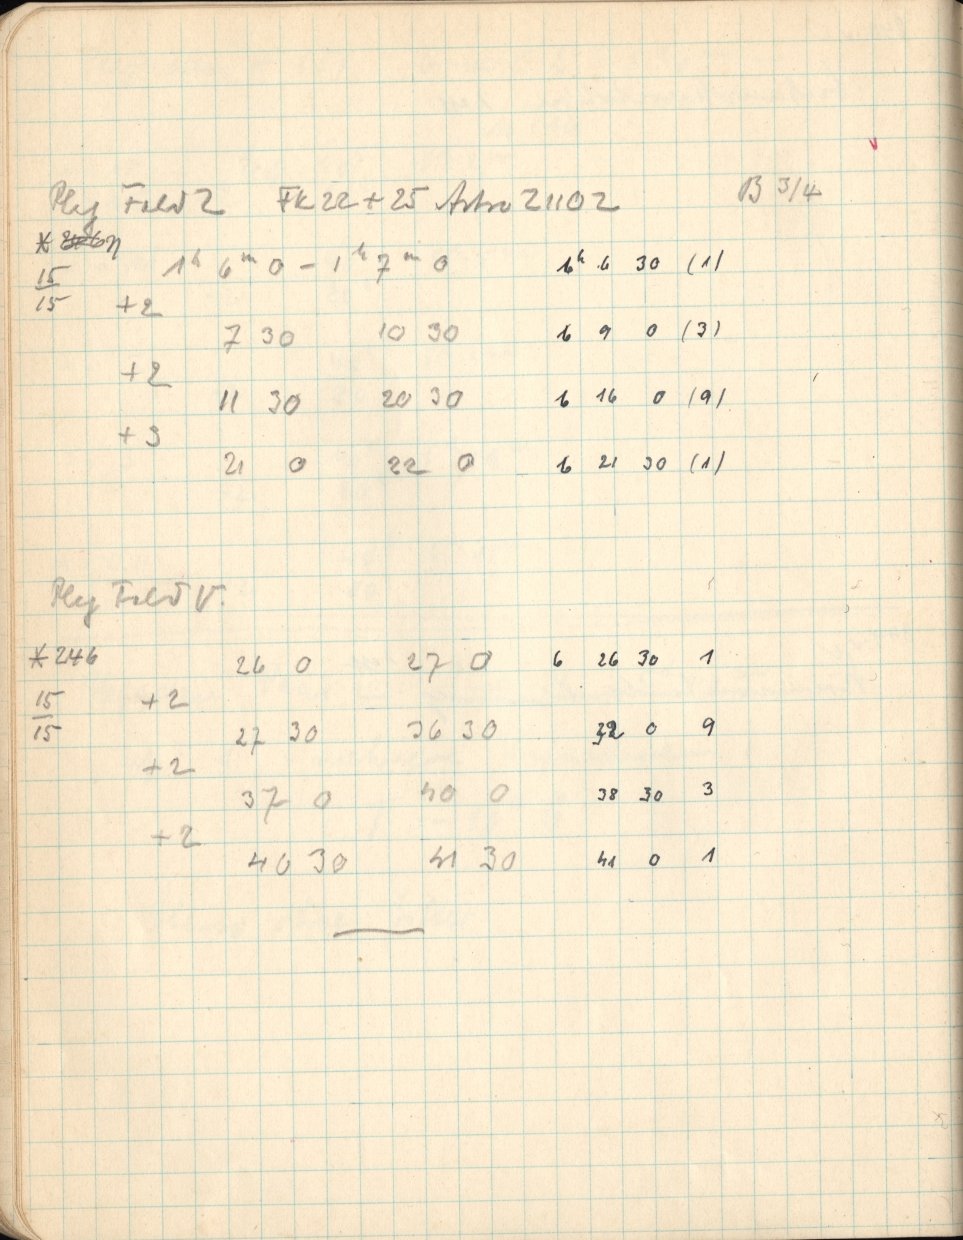 Plej Feld 2 FK 22 + 25 Astro Z 1102 B 3/4
* η
15 1h 6m 0 – 1h 7m 0 6h 6 30 (1)
15 +2
7 30 10 30 6 9 0 (3)
+2
11 30 20 30 6 16 0 (9)
+3
21 0 22 0 6 21 30 (1)
Plej Feld V.
* 246 26 0 27 0 6 26 30 1
15 +2
15 27 30 36 30 32 0 9
+2
37 0 40 0 38 30 3
+2
40 30 41 30 41 0 1